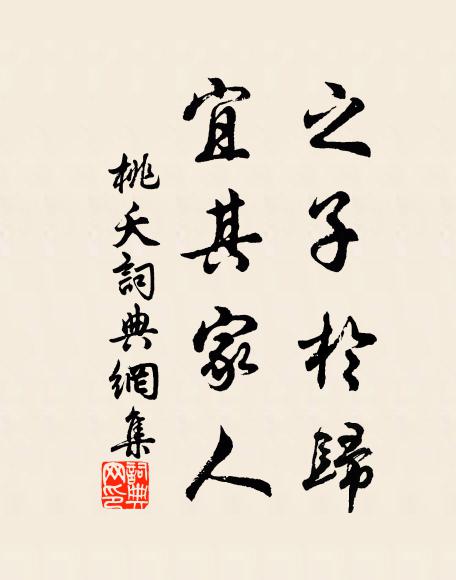 之子於歸
宜其家人
桃夭詞典網集
詞典網印